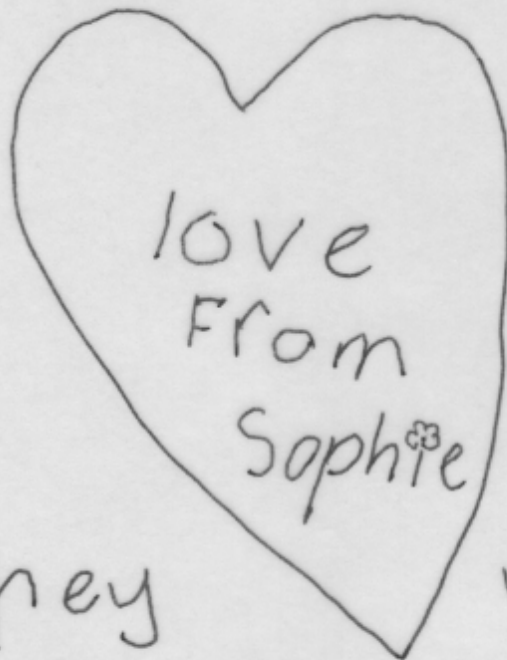 love
From
Sophie
ney